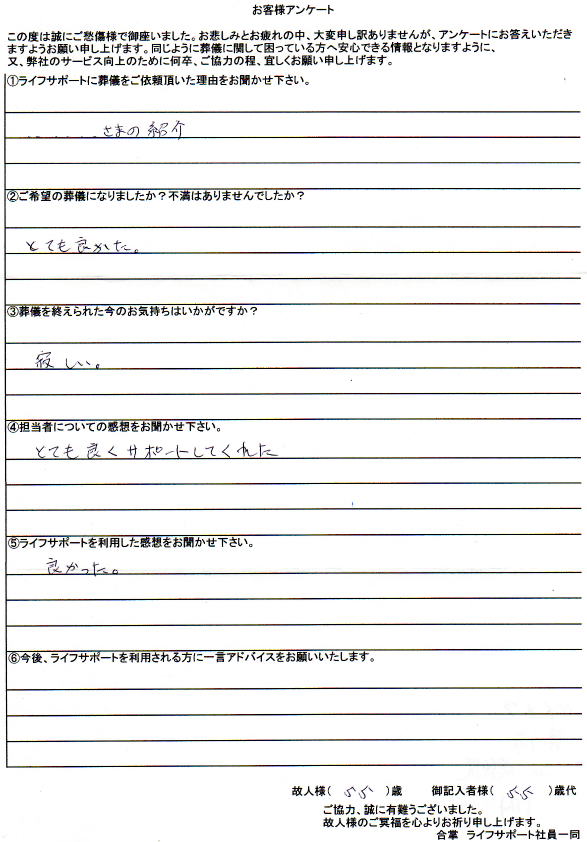 お客様アンケート
この度は誠にご愁傷様で御座いました。お悲しみとお疲れの中、大変申し訳ありませんが、アンケートにお答えいただき
ますようお願い申し上げます。同じように葬儀に関して困っている方へ安心できる情報となりますように、
又、弊社のサービス向上のために何卒、ご協力の程、宜しくお願い申し上げます。
①ライフサポートに葬儀をご依頼頂いた理由をお聞かせ下さい。
さまの紹介
②ご希望の葬儀になりましたか？不満はありませんでしたか？
とても良かた。
③葬儀を終えられた今のお気持ちはいかがですか？
寂しい。
④担当者についての感想をお聞かせ下さい。
とても良くサポートしてくれた
⑤ライフサポートを利用した感想をお聞かせ下さい。
良かった。
⑥今後、ライフサポートを利用される方に一言アドバイスをお願いいたします。
故人様( 55 )歳 御記入者様( 55 )歳代
ご協力、誠に有難うございました。
故人様のご冥福を心よりお祈り申し上げます。
合掌 ライフサポート社員一同